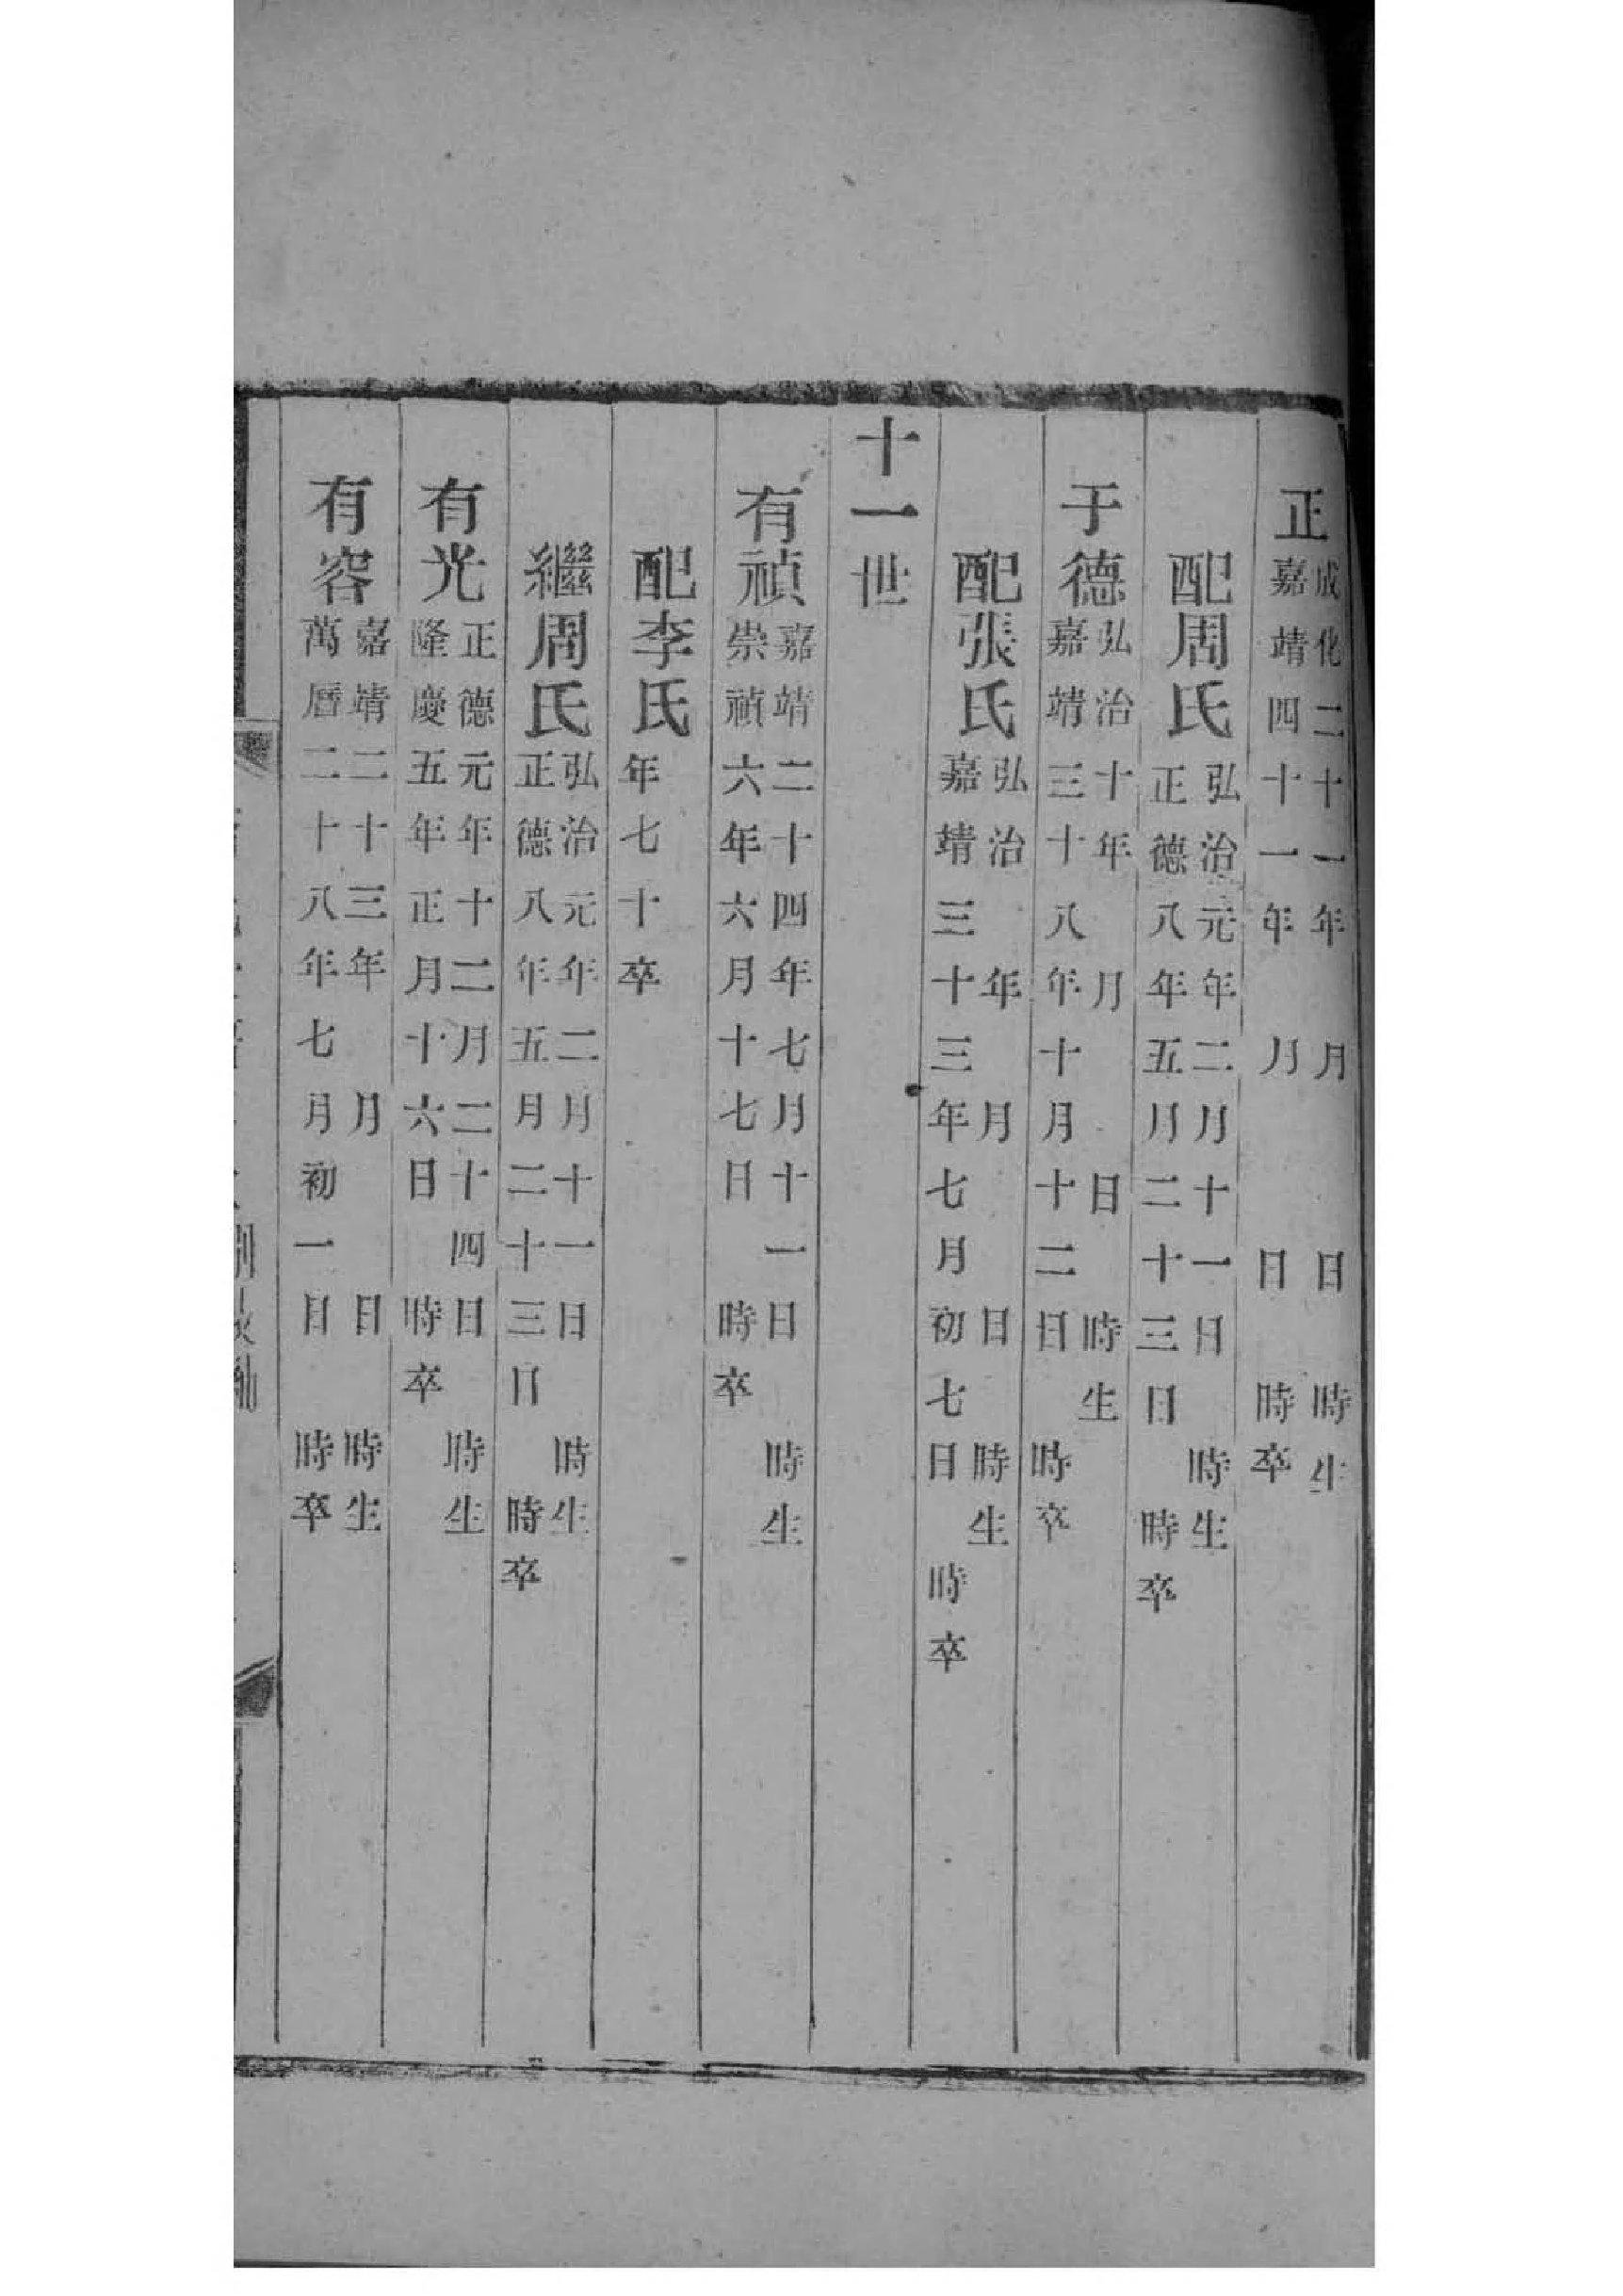 正
成化二十一年 月 日 時生
嘉靖四十一年 月 日 時卒
配周氏
弘治元年二月十一日 時生
正德八年五月二十三日 時卒
于德
弘治十年 月 日 時生
嘉靖三十八年十月十二日 時卒
配張氏
弘治 年 月 日 時生
嘉靖三十三年七月初七日 時卒
十一世
有禎
嘉靖二十四年七月十一日 時生
崇禎六年六月十七日 時卒
配李氏
年七十卒
繼周氏
弘治元年二月十一日 時生
正德八年五月二十三日 時卒
有光
正德元年十二月二十四日 時生
隆慶五年正月十六日 時卒
有容
嘉靖二十三年 月 日 時生
萬曆二十八年七月初一日 時卒